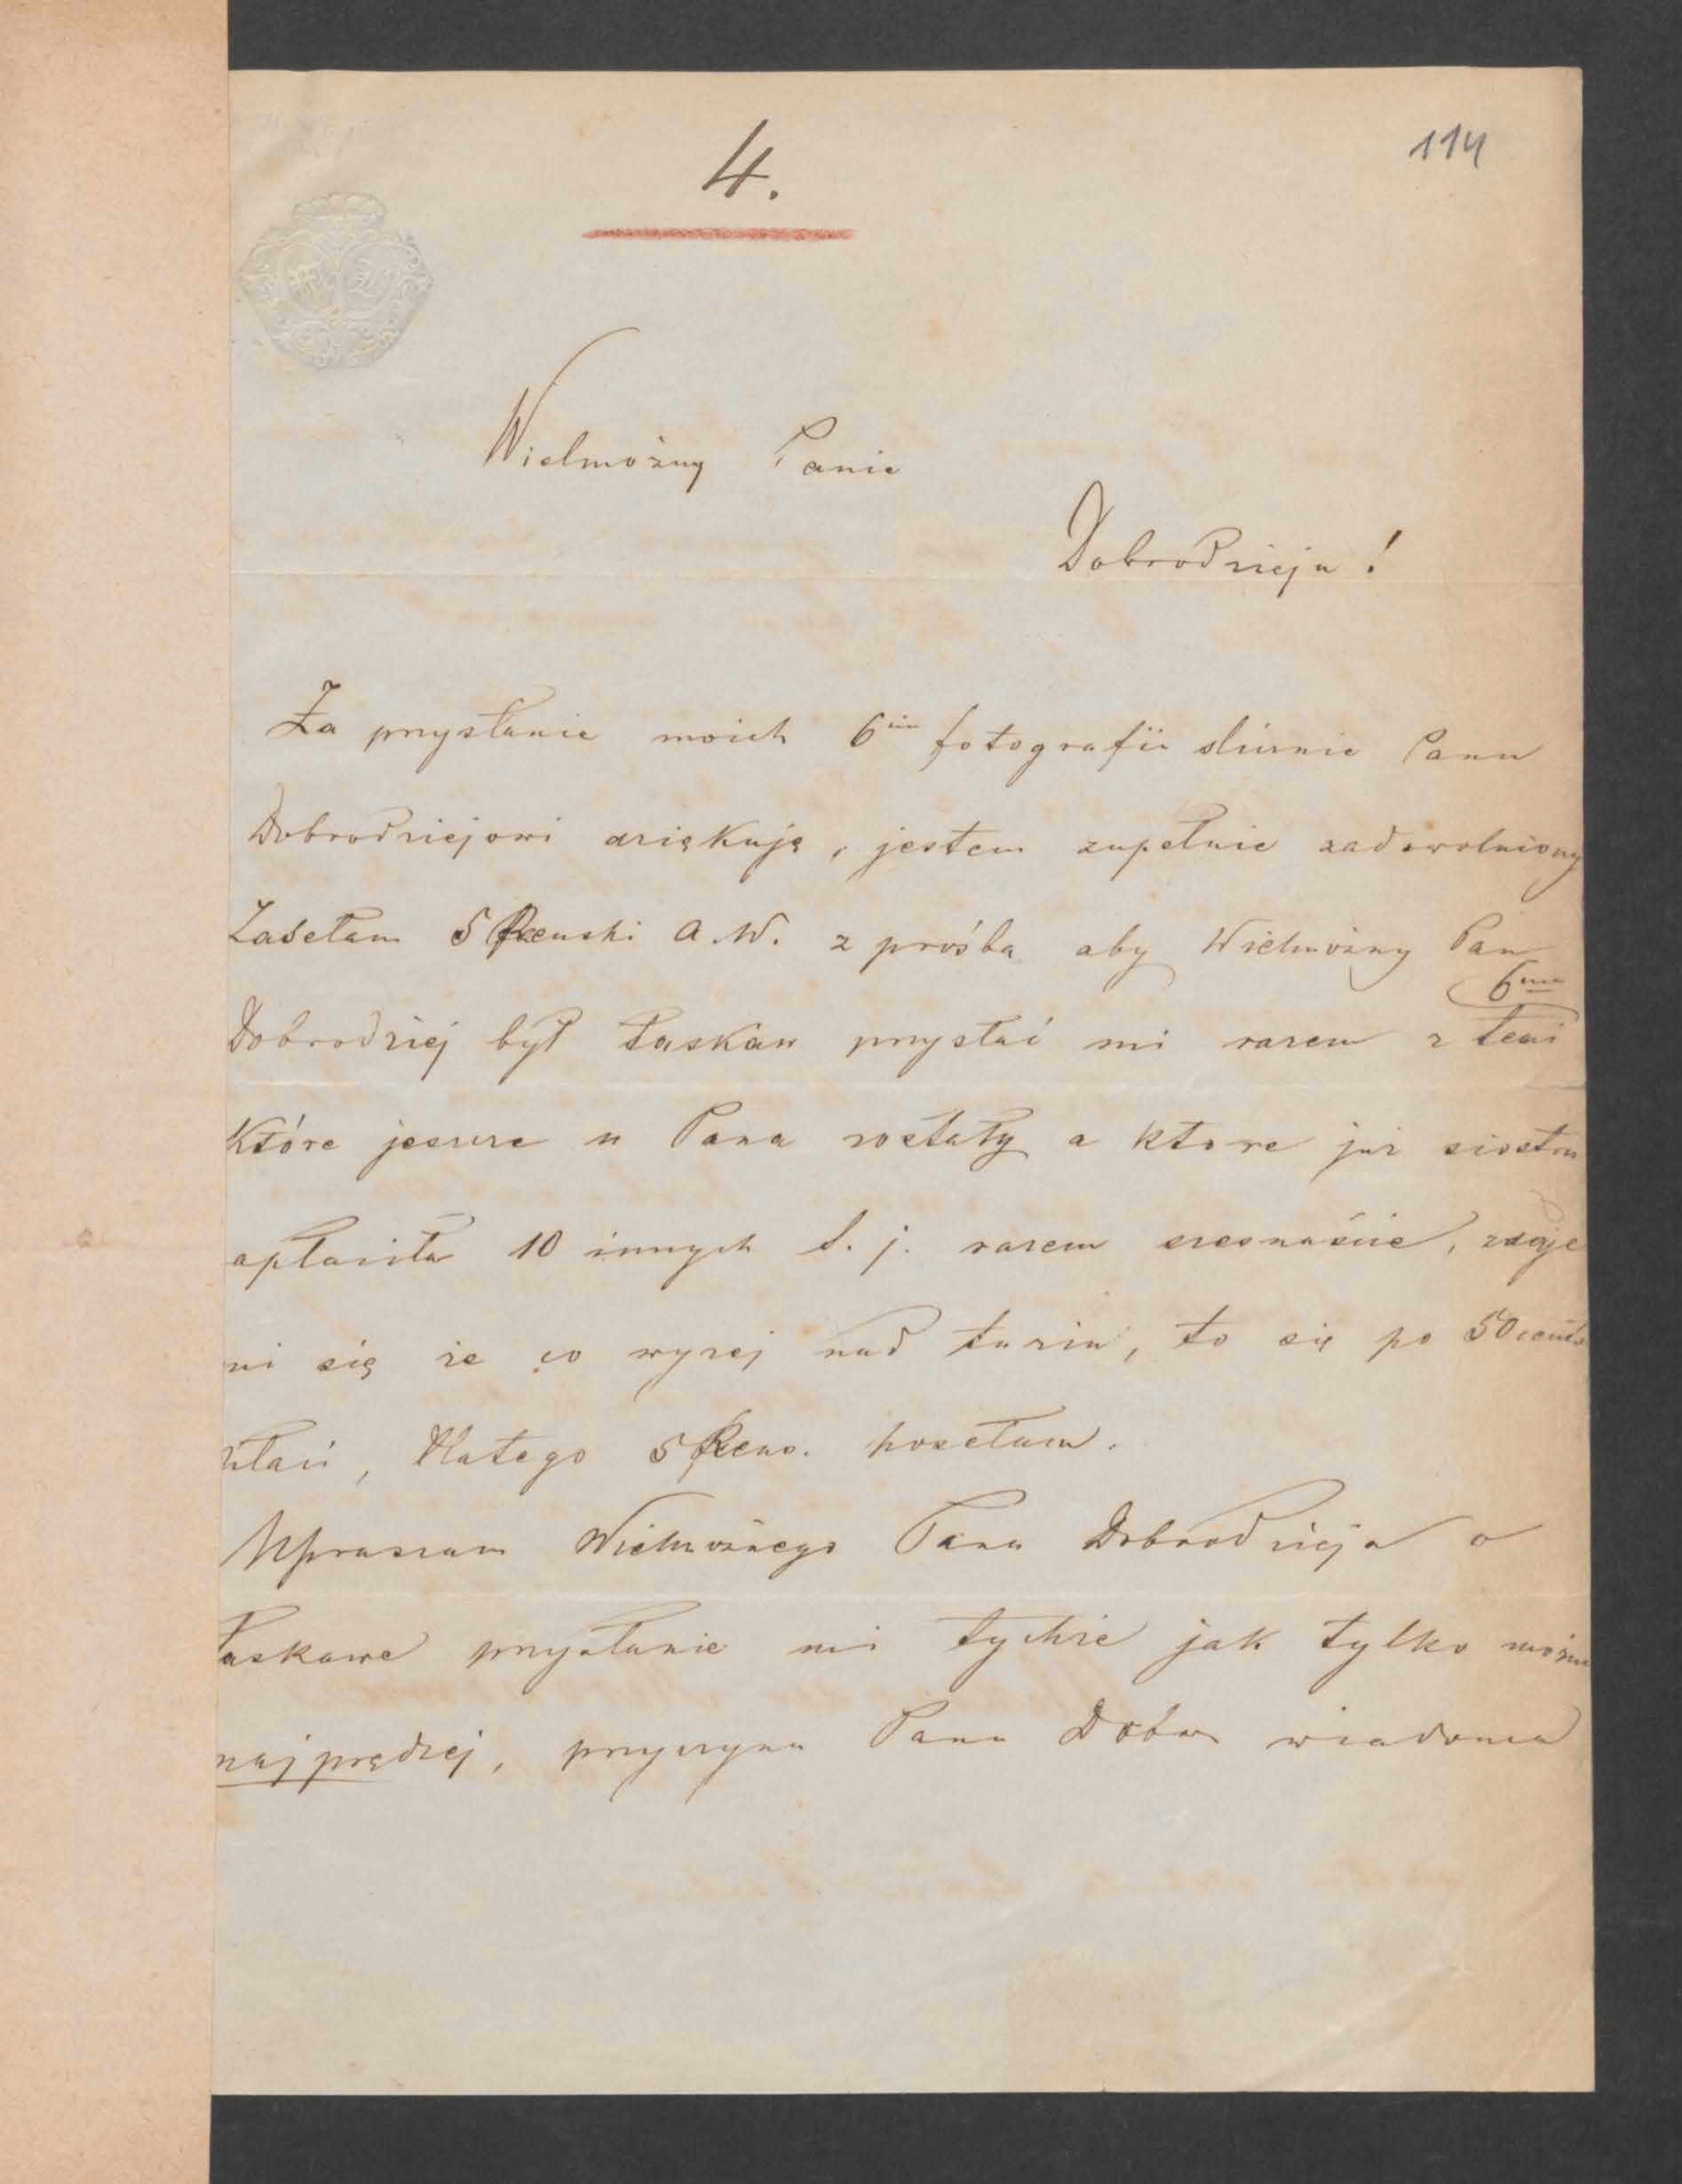 4.
114
Wielmożny Panie
Dobrodzieju!
Za przysłanie moich 6ciu fotografii ślicznie Panu
Dobrodziejowi dziękuję, jestem zupełnie zadowolniony
Zasełam 5 Reński A.W. z prośba aby Wielmożny Pan
6ma
Dobrodziej był łaskaw przysłać mi razem z temi
które jeszcze u Pana zostały a które już siostra
apłaciła 10 innych t.j. razem szesnaście, zdaje
mi się że co wyżej nad tuzin, to się po 50 cent.
płaci, dlatego 5 Reńs. posełam.
Upraszam Wielmożnego Pana Dobrodzieja o
łaskawe przysłanie mi tychże jak tylko można
najprędzej, przyczyna Panu Dobr wiadoma